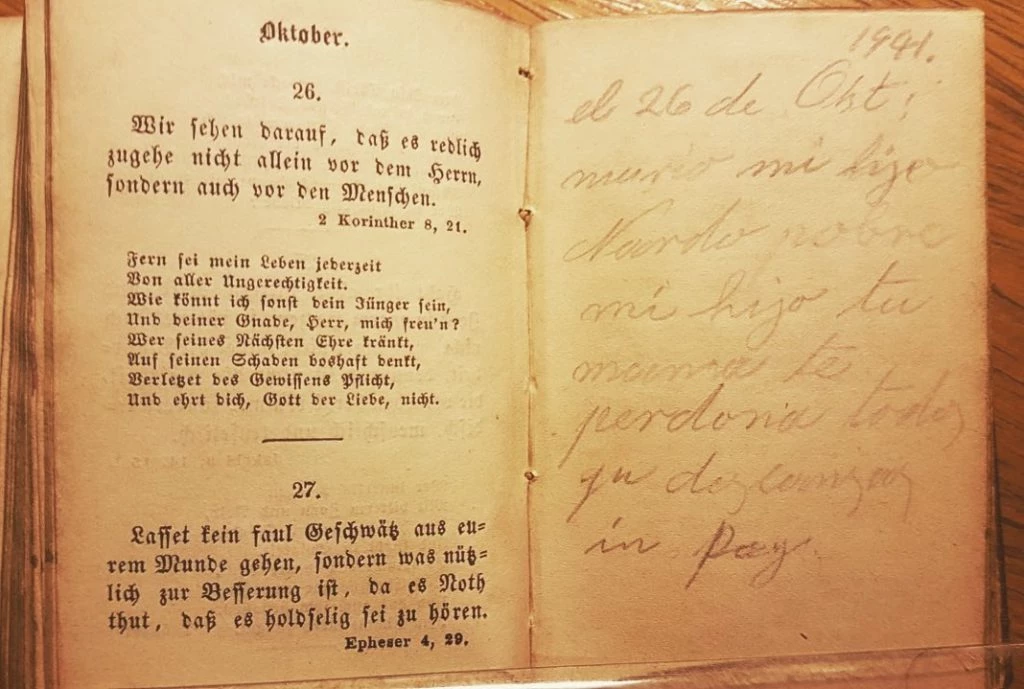 Oktober.
26.
Wir sehen darauf, daß es redlich
zugehe nicht allein vor dem Herrn,
sondern auch vor den Menschen.
2 Korinther 8, 21.
Fern sei mein Leben jederzeit
Von aller Ungerechtigkeit.
Wie könnt ich sonst dein Jünger sein,
Und deiner Gnade, Herr, mich freu'n?
Wer seines Nächsten Ehre kränkt,
Auf seinen Schaden boshaft denkt,
Verletzet des Gewissens Pflicht,
Und ehrt dich, Gott der Liebe, nicht.
27.
Lasset kein faul Geschwätz aus eu=
rem Munde gehen, sondern was nütz=
lich zur Besserung ist, da es Noth
thut, daß es holdselig sei zu hören.
Epheser 4, 29.
1941.
el 26 de Okt:
murio mi hijo
Nardo pobre
mi hijo tu
mama te
perdona todo
qu descanzas
in paz.